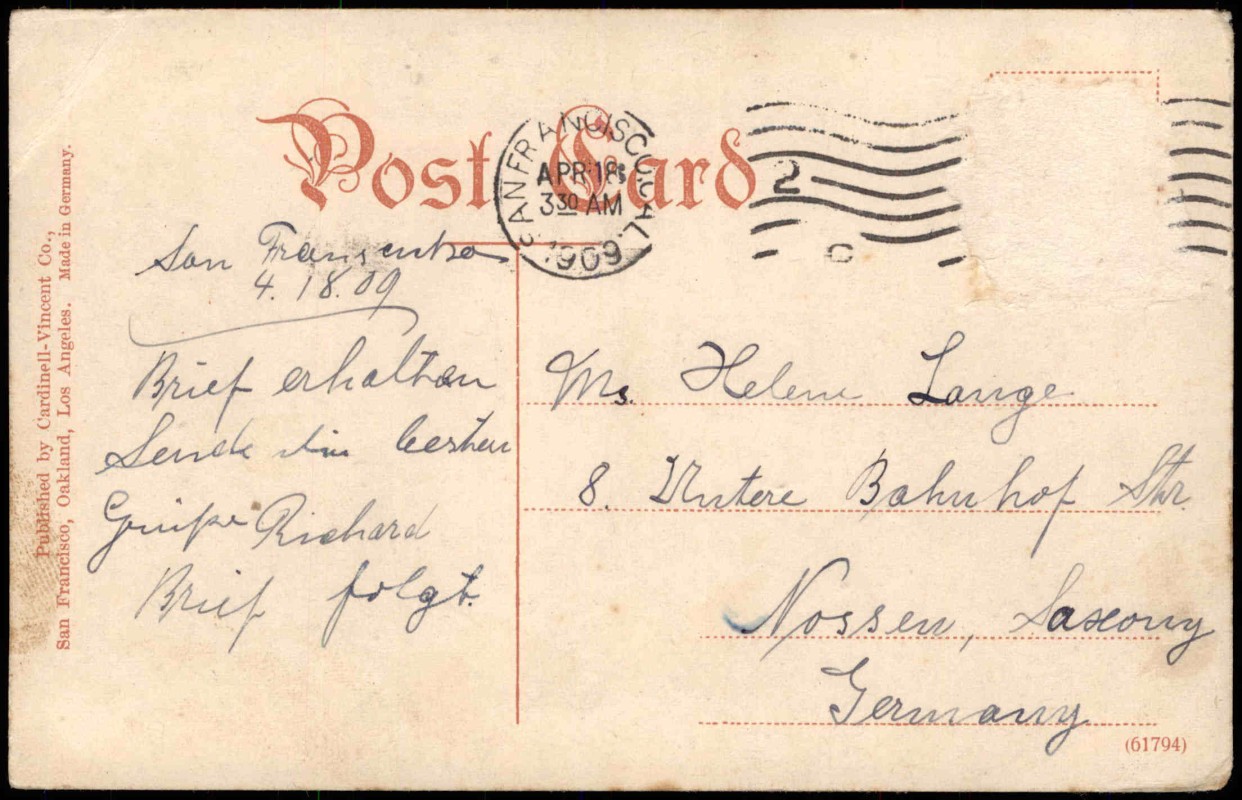 Published by Cardinell-Vincent Co.,
San Francisco, Oakland, Los Angeles. Made in Germany.
Post Card
SAN FRANCISCO, CAL.
APR 18
3 30 AM
1909
2
C
San
4. 18. 09
Brief erhalten
Sende die besten
Grüße Richard
Brief folgt.
Ms. Helene Lange
8. Untere Bahnhof Str.
Nossen, Saxony
Germany
(61794)